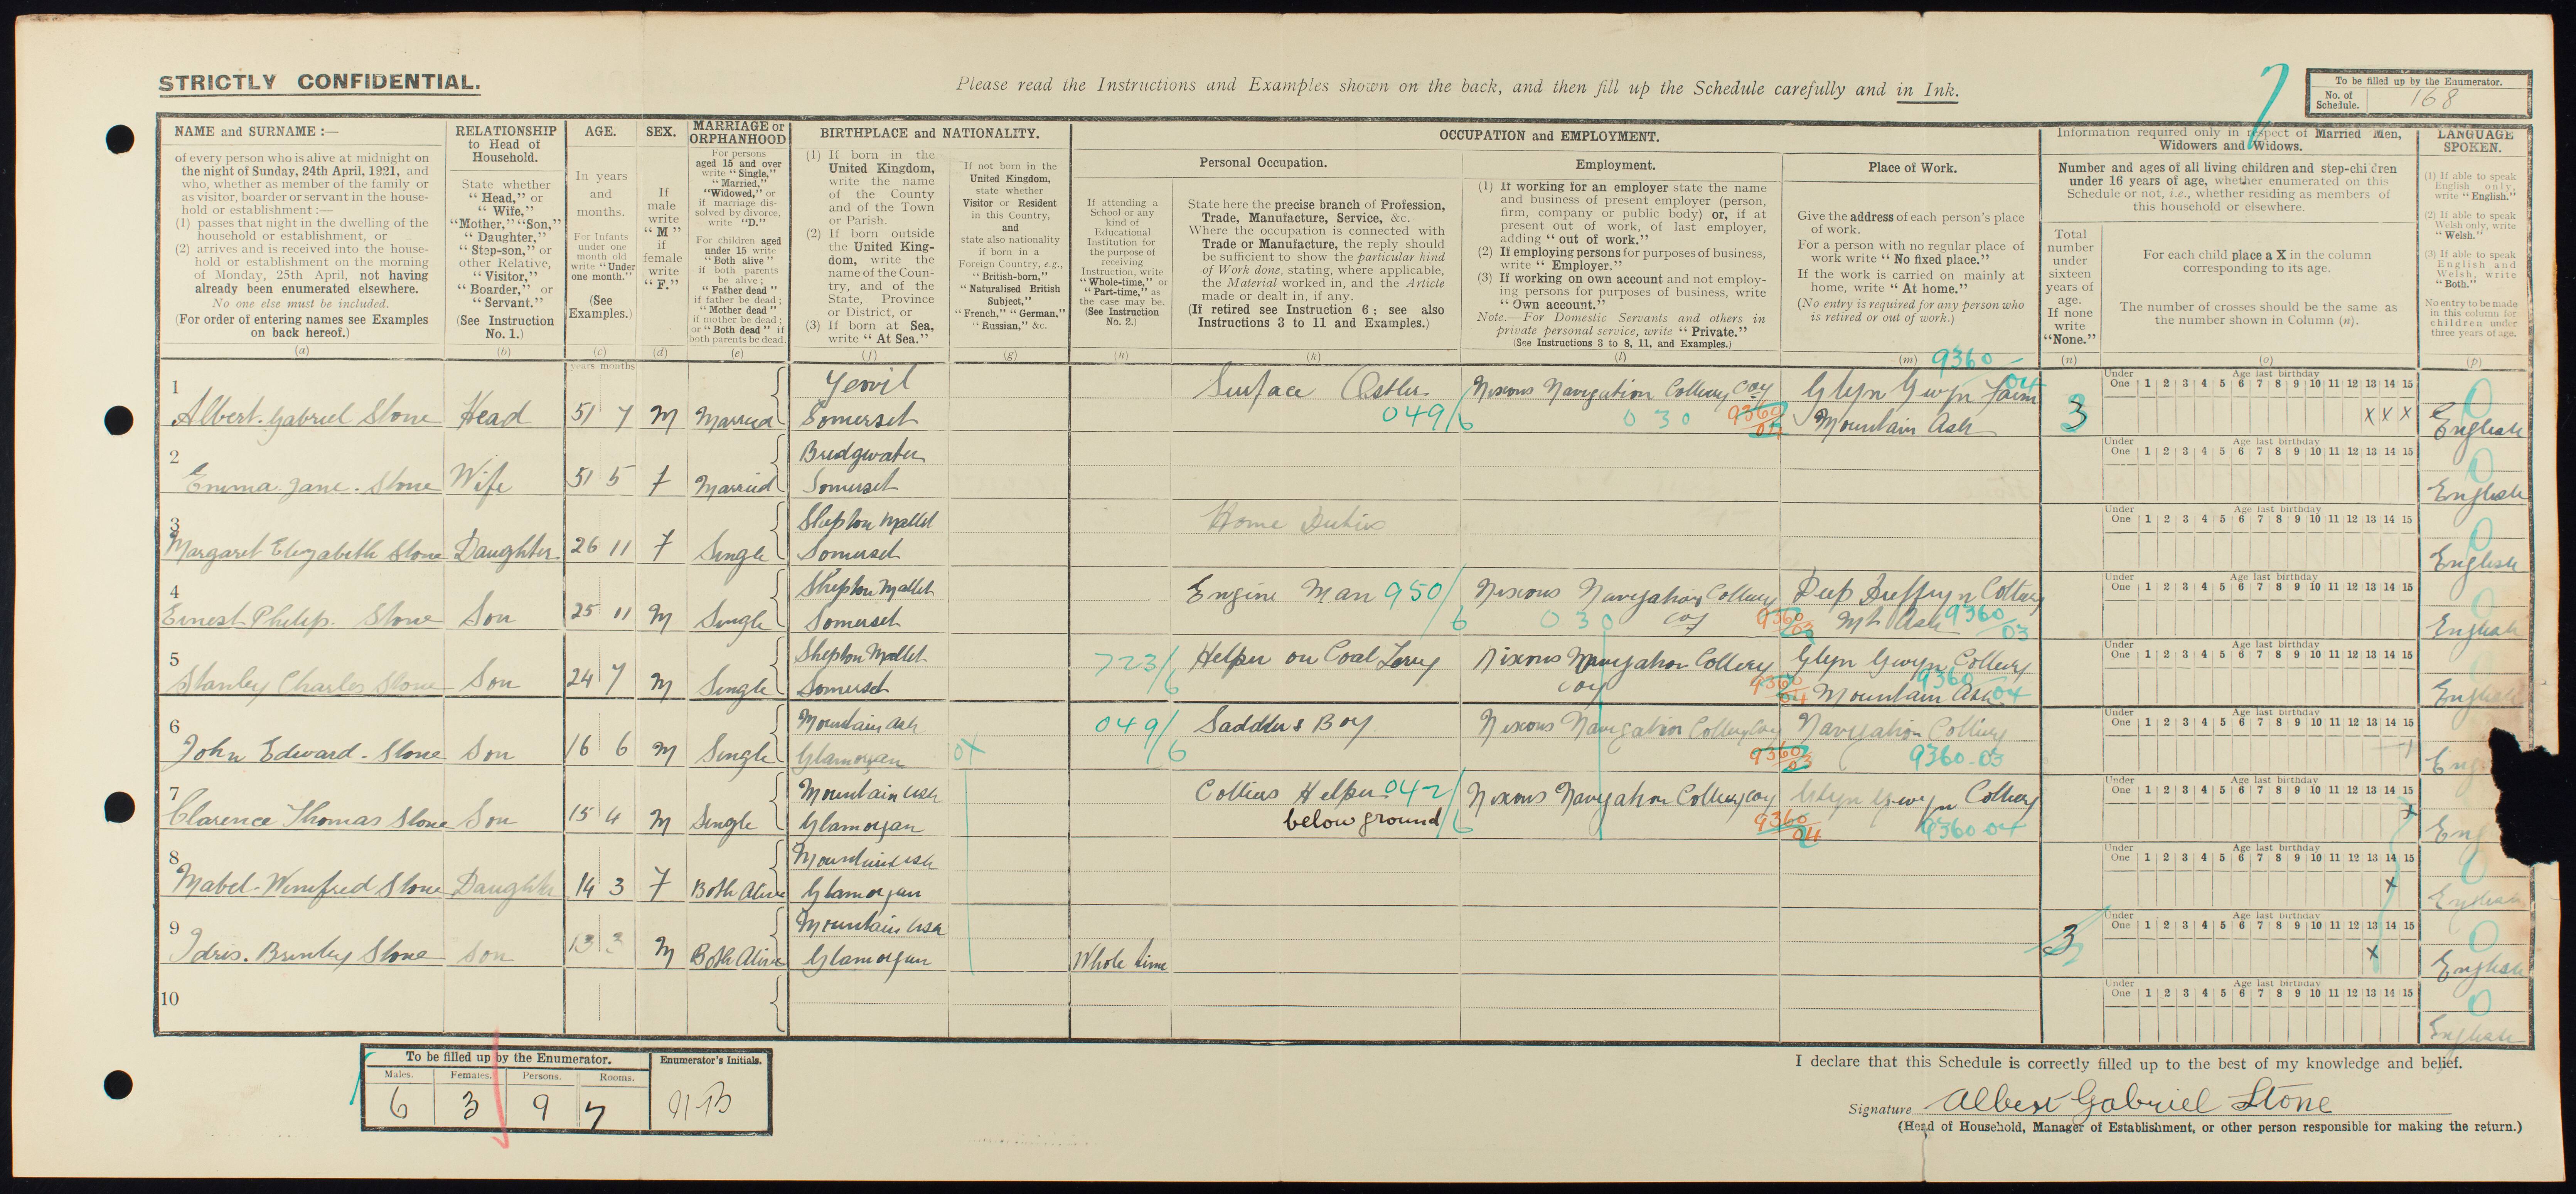 STRICTLY CONFIDENTIAL.
Please read the Instructions and Examples shown on the back, and then fill up the Schedule carefully and in Ink.
To be filled up by the Enumerator.
No. of Schedule. 168
NAME and SURNAME :—
of every person who is alive at midnight on
the night of Sunday, 24th April, 1921, and
who, whether as member of the family or
as visitor, boarder or servant in the house-
hold or establishment :—
(1) passes that night in the dwelling of the
household or establishment, or
(2) arrives and is received into the house-
hold or establishment on the morning
of Monday, 25th April, not having
already been enumerated elsewhere.
No one else must be included.
(For order of entering names see Examples
on back hereof.)
(a)
RELATIONSHIP
to Head of
Household.
State whether
"Head," or
"Wife,"
"Mother," "Son,"
"Daughter,"
"Step-son," or
other Relative,
"Visitor,"
"Boarder," or
"Servant."
(See Instruction
No. 1.)
(b)
AGE.
In years
and
months.
For Infants
under one
month old
write "Under
one month."
(See
Examples.)
(c)
years months
SEX.
If
male
write
"M"
if
female
write
"F."
(d)
MARRIAGE or
ORPHANHOOD
For persons
aged 15 and over
write "Single,"
"Married,"
"Widowed," or
if marriage dis-
solved by divorce,
write "D."
For children aged
under 15 write
"Both alive"
if both parents
be alive;
"Father dead"
if father be dead;
"Mother dead"
if mother be dead;
or "Both dead" if
both parents be dead.
(e)
BIRTHPLACE and NATIONALITY.
(1) If born in the
United Kingdom,
write the name
of the County
and of the Town
or Parish.
(2) If born outside
the United King-
dom, write the
name of the Coun-
try, and of the
State, Province
or District, or
(3) If born at Sea,
write "At Sea."
(f)
If not born in the
United Kingdom,
state whether
Visitor or Resident
in this Country,
and
state also nationality
if born in a
Foreign Country, e.g.,
"British-born,"
"Naturalised British
Subject,"
"French," "German,"
"Russian," &c.
(g)
OCCUPATION and EMPLOYMENT.
If attending a
School or any
kind of
Educational
Institution for
the purpose of
receiving
Instruction, write
"Whole-time," or
"Part-time," as
the case may be.
(See Instruction
No. 2.)
(h)
Personal Occupation.
State here the precise branch of Profession,
Trade, Manufacture, Service, &c.
Where the occupation is connected with
Trade or Manufacture, the reply should
be sufficient to show the particular kind
of Work done, stating, where applicable,
the Material worked in, and the Article
made or dealt in, if any.
(If retired see Instruction 6 ; see also
Instructions 3 to 11 and Examples.)
(k)
Employment.
(1) If working for an employer state the name
and business of present employer (person,
firm, company or public body) or, if at
present out of work, of last employer,
adding "out of work."
(2) If employing persons for purposes of business,
write "Employer."
(3) If working on own account and not employ-
ing persons for purposes of business, write
"Own account."
Note.—For Domestic Servants and others in
private personal service, write "Private."
(See Instructions 3 to 8, 11, and Examples.)
(l)
Place of Work.
Give the address of each person's place
of work.
For a person with no regular place of
work write "No fixed place."
If the work is carried on mainly at
home, write "At home."
(No entry is required for any person who
is retired or out of work.)
(m)
Information required only in respect of Married Men,
Widowers and Widows.
Number and ages of all living children and step-children
under 16 years of age, whether enumerated on this
Schedule or not, i.e., whether residing as members of
this household or elsewhere.
Total
number
under
sixteen
years of
age.
If none
write
"None."
(n)
For each child place a X in the column
corresponding to its age.
The number of crosses should be the same as
the number shown in Column (n).
(o)
LANGUAGE
SPOKEN.
(1) If able to speak
English only,
write "English."
(2) If able to speak
Welsh only, write
"Welsh."
(3) If able to speak
English and
Welsh, write
"Both."
No entry to be made
in this column for
children under
three years of age.
(p)
9360
04
1 Albert. Gabriel Stone Head 51 7 M Married Yeovil Somerset Surface Ostler 049/6 Nixons Navigation Colliery Coy 030 9360/04 Glyn Gwyn Farm Mountain Ash 3 X X X English
Under One 1 2 3 4 5 6 7 8 9 10 11 12 13 14 15
Age last birthday
2 Emma Jane. Stone Wife 51 5 F Married Bridgwater Somerset English
Under One 1 2 3 4 5 6 7 8 9 10 11 12 13 14 15
Age last birthday
3 Margaret Elizabeth Stone Daughter 26 11 F Single Shepton Mallet Somerset Home Duties English
Under One 1 2 3 4 5 6 7 8 9 10 11 12 13 14 15
Age last birthday
4 Ernest Philip. Stone Son 25 11 M Single Shepton Mallet Somerset Engine Man 950/6 Nixons Navigation Colliery Coy 030 9360/03 Deep Duffryn Colliery Mt Ash 9360/03 English
Under One 1 2 3 4 5 6 7 8 9 10 11 12 13 14 15
Age last birthday
5 Stanley Charles Stone Son 24 7 M Single Shepton Mallet Somerset 723/6 Helper on Coal Lorry Nixons Navigation Colliery Coy 9360/04 Glyn Gwyn Colliery Mountain Ash 9360 04 English
Under One 1 2 3 4 5 6 7 8 9 10 11 12 13 14 15
Age last birthday
6 John Edward. Stone Son 16 6 M Single Mountain Ash Glamorgan 049/6 Saddlers Boy Nixons Navigation Colliery Coy 9360/03 Navigation Colliery 9360-03 Eng
Under One 1 2 3 4 5 6 7 8 9 10 11 12 13 14 15
Age last birthday
7 Clarence Thomas Stone Son 15 4 M Single Mountain Ash Glamorgan Colliers Helper 042/6 below ground Nixons Navigation Colliery Coy 9360/04 Glyn Gwyn Colliery 9360 04 X Eng
Under One 1 2 3 4 5 6 7 8 9 10 11 12 13 14 15
Age last birthday
8 Mabel. Winifred Stone Daughter 14 3 F Both Alive Mountain Ash Glamorgan X English
Under One 1 2 3 4 5 6 7 8 9 10 11 12 13 14 15
Age last birthday
9 Idris. Brinley Stone Son 13 3 M Both Alive Mountain Ash Glamorgan Whole time 3 X English
Under One 1 2 3 4 5 6 7 8 9 10 11 12 13 14 15
Age last birthday
10 English
Under One 1 2 3 4 5 6 7 8 9 10 11 12 13 14 15
Age last birthday
To be filled up by the Enumerator.
Enumerator's Initials.
Males. Females. Persons. Rooms.
6 3 9 7
I declare that this Schedule is correctly filled up to the best of my knowledge and belief.
Signature Albert Gabriel Stone
(Head of Household, Manager of Establishment, or other person responsible for making the return.)